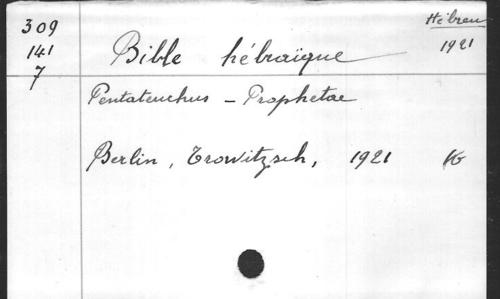 309
141
7
Hébreu
1921
Bible hébraïque
Pentateuchus – Prophetae
Berlin, Trowitzsch, 1921